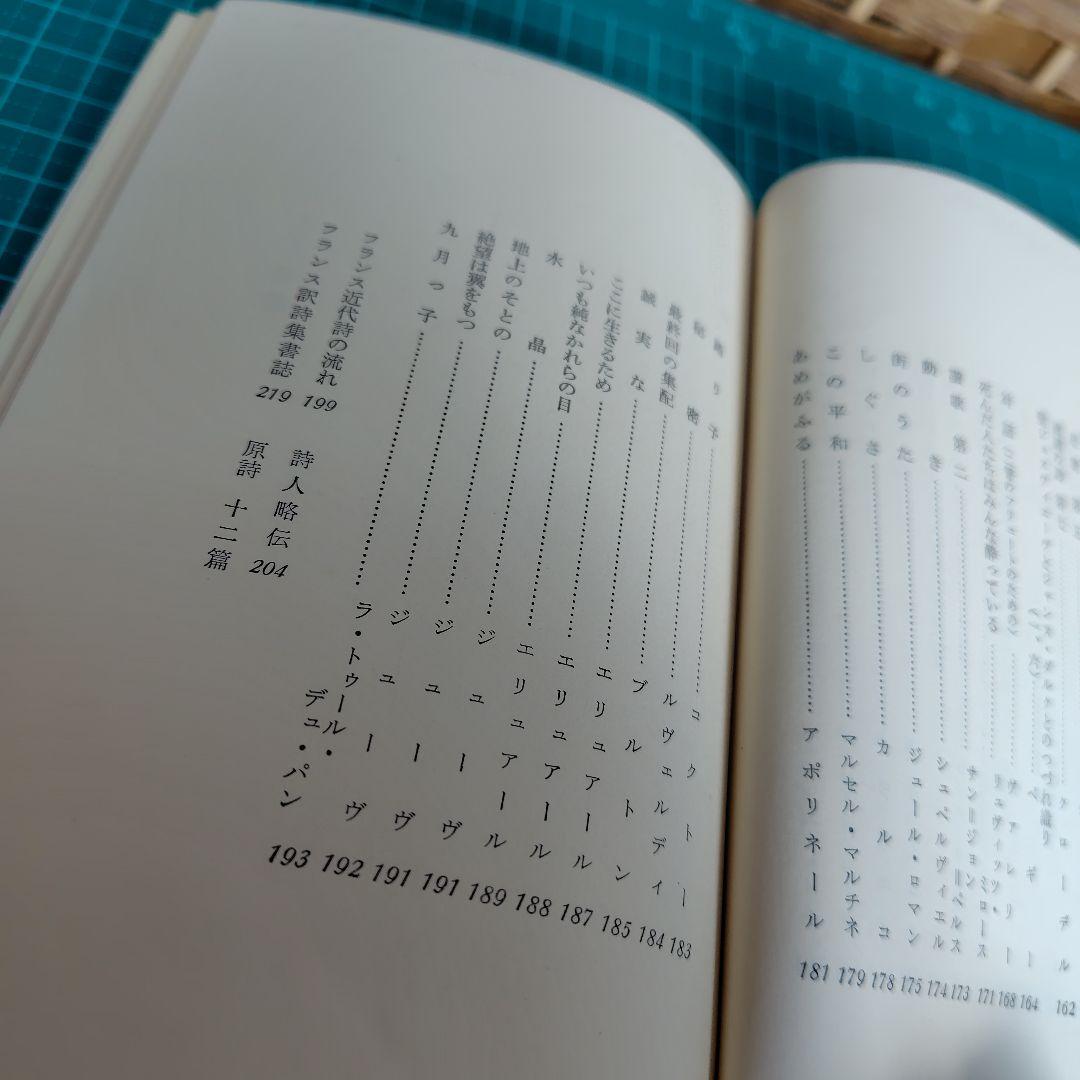 クローデル 162
ペギー 164
ヴァレリー 168
死んだ人たちはみんな酔っている…… リュヴィッツ・ミロース 171
サン＝ジョン＝ペルス 173
動き…… シュペルヴィエル 174
街のうた…… ジュール・ロマン 175
しぐさ…… カルコ 178
この平和…… マルセル・マルチネ 179
あめがふる…… アポリネール 181
踊り子…… コクトー 183
秘密…… ルヴェルディ 184
最終回の集配…… ブルトン 185
誠実な…… エリュアール 187
ここに生きるため…… エリュアール 188
いつも純なかれらの目…… エリュアール 189
水晶…… ジューヴ 191
地上のそとの…… ジューヴ 191
絶望は翼をもつ…… ジューヴ 192
九月っ子…… ラ・トゥール・デュ・パン 193
フランス近代詩の流れ 199 詩人略伝 204
フランス訳詩集書誌 219 原詩 十二篇